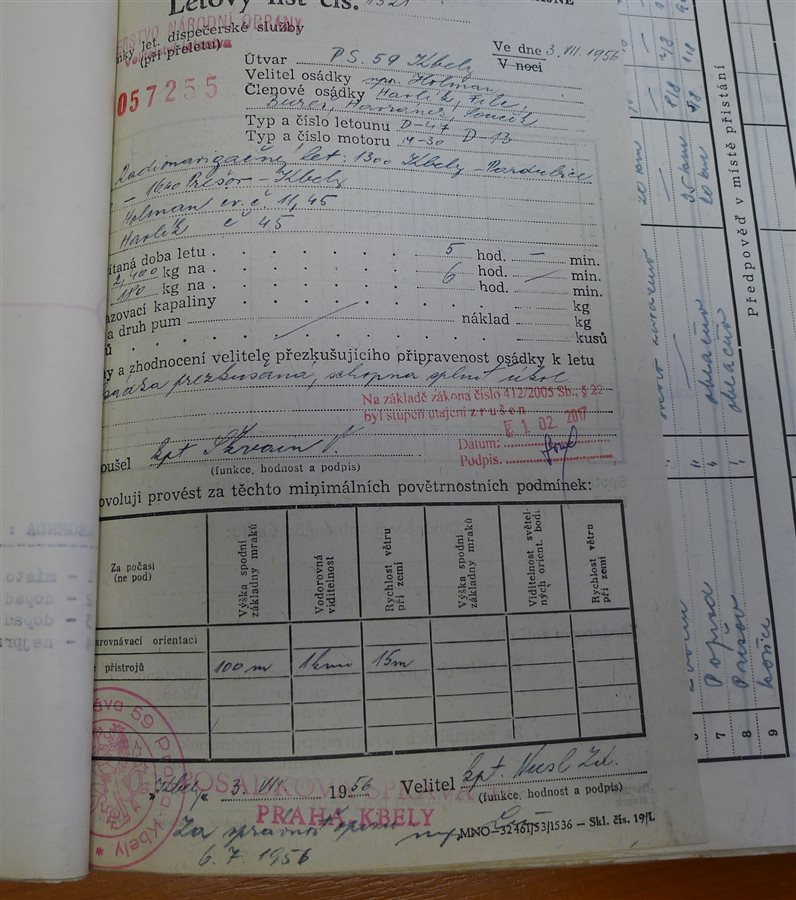 Letový list čís. 1321
ERSTVO NÁRODNÍ OBRANY
nky let. dispečerské služby
(při přeletu)
057255
Ve dne 3. VII. 1956
V noci
Útvar PS. 59 Kbely
Velitel osádky npr. Holman
Členové osádky Havlík, File,
Bureš, Havránek, Souček
Typ a číslo letounu D-47 D-13
Typ a číslo motoru M-30
Radionavigační let: 1300 Kbely - Pardubice
- 1640 Prešov - Kbely
Holman ev. č. 11,45
Havlík č 45
ítaná doba letu 5 hod. — min.
2,400 kg na 6 hod. — min.
180 kg na hod. min.
azovací kapaliny kg
a druh pum náklad kg
ů kusů
y a zhodnocení velitele přezkušujícího připravenost osádky k letu
sádka přezkušána, schopna splnit úkol
Na základě zákona číslo 412/2005 Sb., § 22
byl stupeň utajení zrušen
Datum: 1 02. 2017
Podpis.
oušel kpt
(funkce, hodnost a podpis)
ovoluji provést za těchto minimálních povětrnostních podmínek:
Za počasí
(ne pod)
Výška spodní
základny mraků
Vodorovná
viditelnost
Rychlost větru
při zemi
Výška spodní
základny mraků
Viditelnost světel-
ných orient. bodů
Rychlost větru
při zemi
srovnávací orientaci
přístrojů 100 m 1 km 15 m
"Kbely" 3. VII. 1956 Velitel kpt. Nusl Zd.
(funkce, hodnost a podpis)
POSÁDKOVÁ SPRÁVA
PRAHA KBELY
áva 59 Praha - Kbely *
Za správnost opisu
6. 7. 1956
MNO—32461/53/1536 — Skl. čís. 19/L
Předpověď v místě přistání
20 km
35 km
20 km
oblačno
oblačno
7 Poprad
8 Prešov
9 Košice
LEGENDA :
1 - místo
2 - dopad
3 - dopad
4 - nejpr